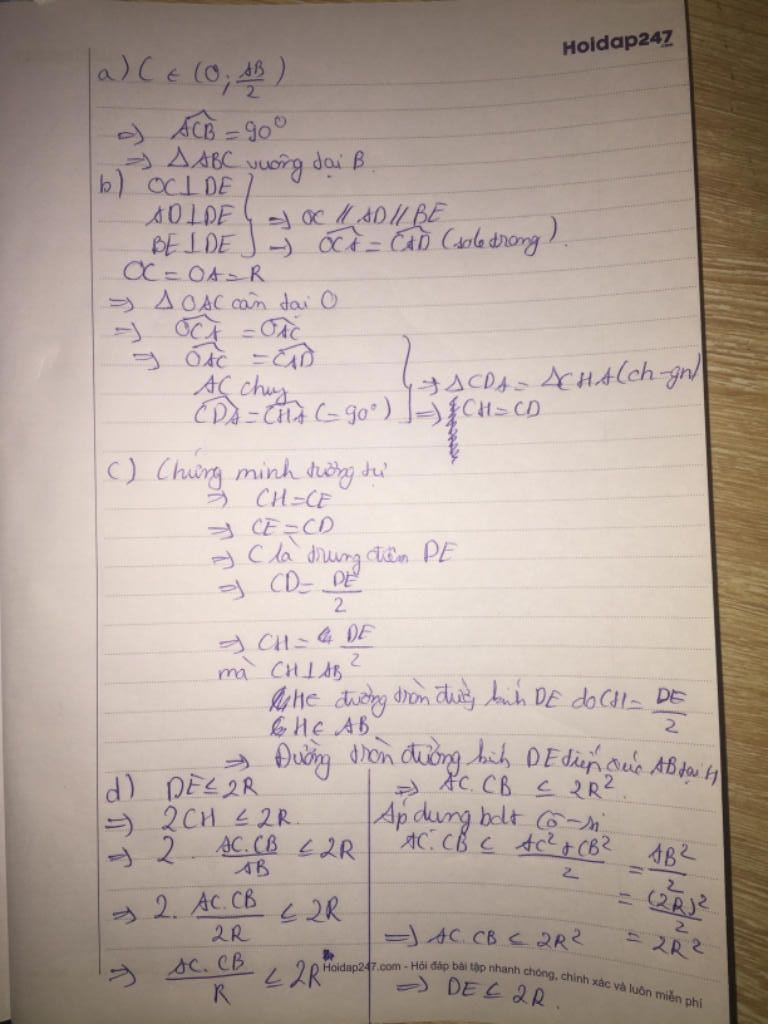 Hoidap247
a) C ∈ (O; AB/2)
⇒ ACB = 90°
⇒ ΔABC vuông tại B.
b) OC⊥DE
AD⊥DE ⇒ OC // AD // BE
BE⊥DE ⇒ OCA = CAD (sole trong).
OC = OA = R
⇒ ΔOAC cân tại O
⇒ OCA = OAC
⇒ OAC = CAD
AC chug ⇒ ΔCDA = ΔCHA (ch-gn)
CDA = CHA (= 90°) ⇒ CH = CD
c) Chứng minh tương tự
⇒ CH = CE
⇒ CE = CD
⇒ C là trung điểm DE
⇒ CD = DE/2
⇒ CH = DE/2
mà CH⊥AB
H ∈ đường tròn đường kính DE do CH = DE/2
H ∈ AB
⇒ Đường tròn đường kính DE tiếp xúc AB tại H
d) DE ≤ 2R
⇒ 2CH ≤ 2R
⇒ 2. AC.CB/AB ≤ 2R
⇒ 2. AC.CB/2R ≤ 2R
⇒ AC.CB/R ≤ 2R
⇒ AC.CB ≤ 2R²
Áp dụng bđt Cô-si
AC.CB ≤ AC²+CB²/2 = AB²/2
= (2R)²/2
⇒ AC.CB ≤ 2R² = 2R²
⇒ DE ≤ 2R.
Hoidap247.com - Hỏi đáp bài tập nhanh chóng, chính xác và luôn miễn phí